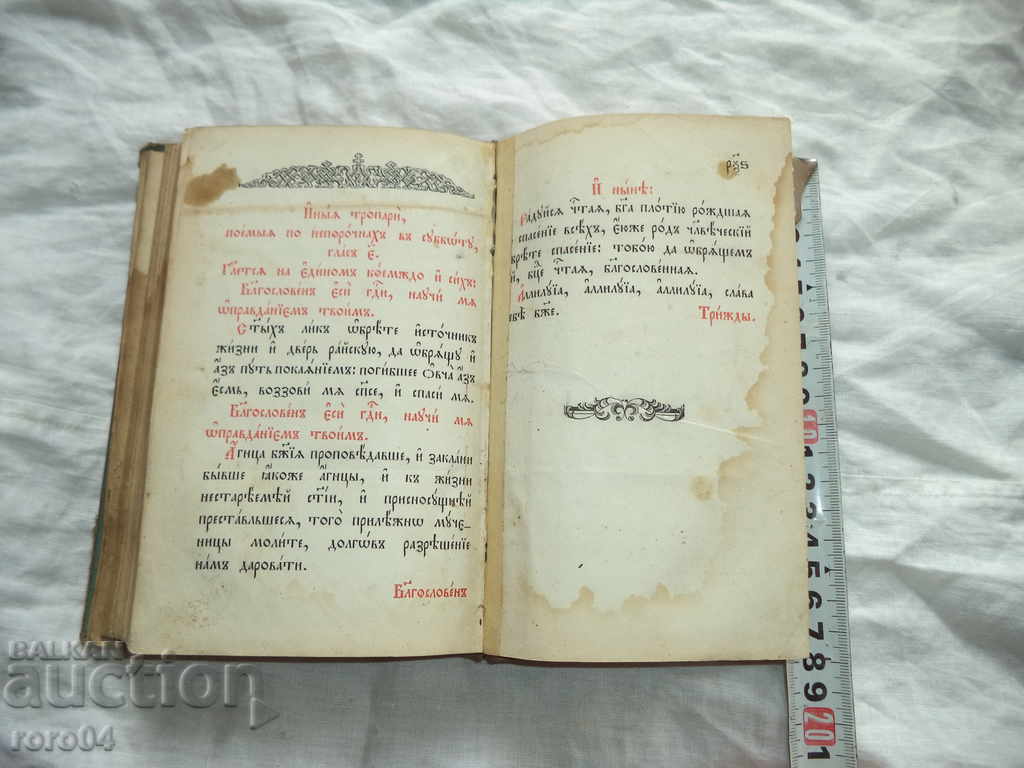 И҆ны́ѧ тропари̑,
пое́мыѧ по непоро́чнахъ въ сꙋббѡ́тꙋ,
гла́съ є҃.
Гл҃етсѧ на є҆ди́номъ коему́ждо и҆ си́хъ:
Блгⷭ҇ове́нъ є҆сѝ гдⷭ҇и, наꙋчи́ мѧ
ѡ҆правда́нїємъ твои̑мъ.
Ст҃ы́хъ ли́къ ѡ҆брѣ́те и҆сто́чникъ
жи́зни и҆ две́рь ра́йскꙋю, да ѡ҆брѧ́щꙋ и҆
а҆́зъ пꙋ́ть покаѧ́нїемъ: поги́бшее ѻ҆вча̀ а҆́зъ
є҆́смь, воззови́ мѧ сп҃се, и҆ спаси́ мѧ.
Блгⷭ҇ове́нъ є҆сѝ гдⷭ҇и, наꙋчи́ мѧ
ѡ҆правда́нїємъ твои̑мъ.
А҆́гнца бж҃їѧ проповѣ́давше, и҆ закла́ни
бы́вше ꙗ҆́коже а҆́гнцы, и҆ къ жи́зни
нестарѣ́емѣй ст҃і́и, и҆ присносꙋ́щнѣй
преста́вльшесѧ, того̀ прилѣ́жнѡ мч҃е-
ницы моли́те, долгѡ́въ разрѣше́нїе
на́мъ дарова́ти.
Блгⷭ҇ове́нъ
рч҃ѕ
И҆ ны́нѣ:
адꙋйсѧ чтⷭ҇аѧ, бг҃а пло́тїю ро́ждшаѧ
спасе́нїе всѣ́хъ, є҆́юже ро́дъ чл҃вѣ́ческїй
брѣ́те спасе́нїе: тобо́ю да ѡ҆брѧ́щемъ
й, бцⷣе чтⷭ҇аѧ, блгⷭ҇ове́ннаѧ.
А҆ллилꙋ́їа, а҆ллилꙋ́їа, а҆ллилꙋ́їа, сла́ва
ебѣ̀ бж҃е. Три́жды.
10 1 2 3 4 5 6 7 8 9 20 1
BALKAN
auction
roro04